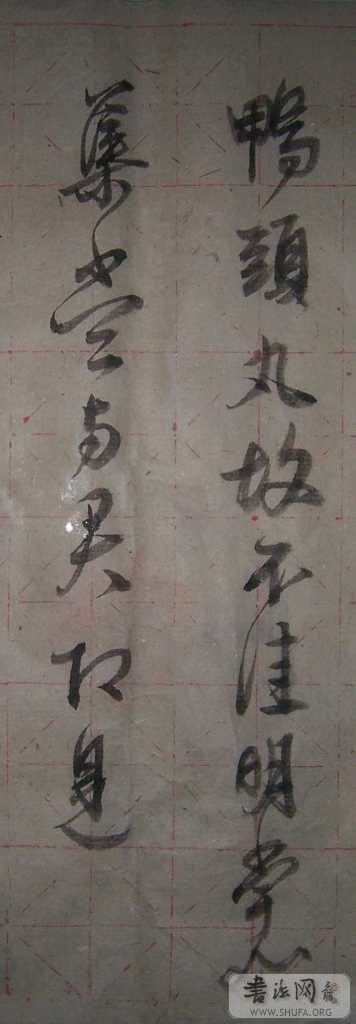 鴨頭丸故不佳明當必
集當與君相見
書法网
WWW.SHUFA.ORG